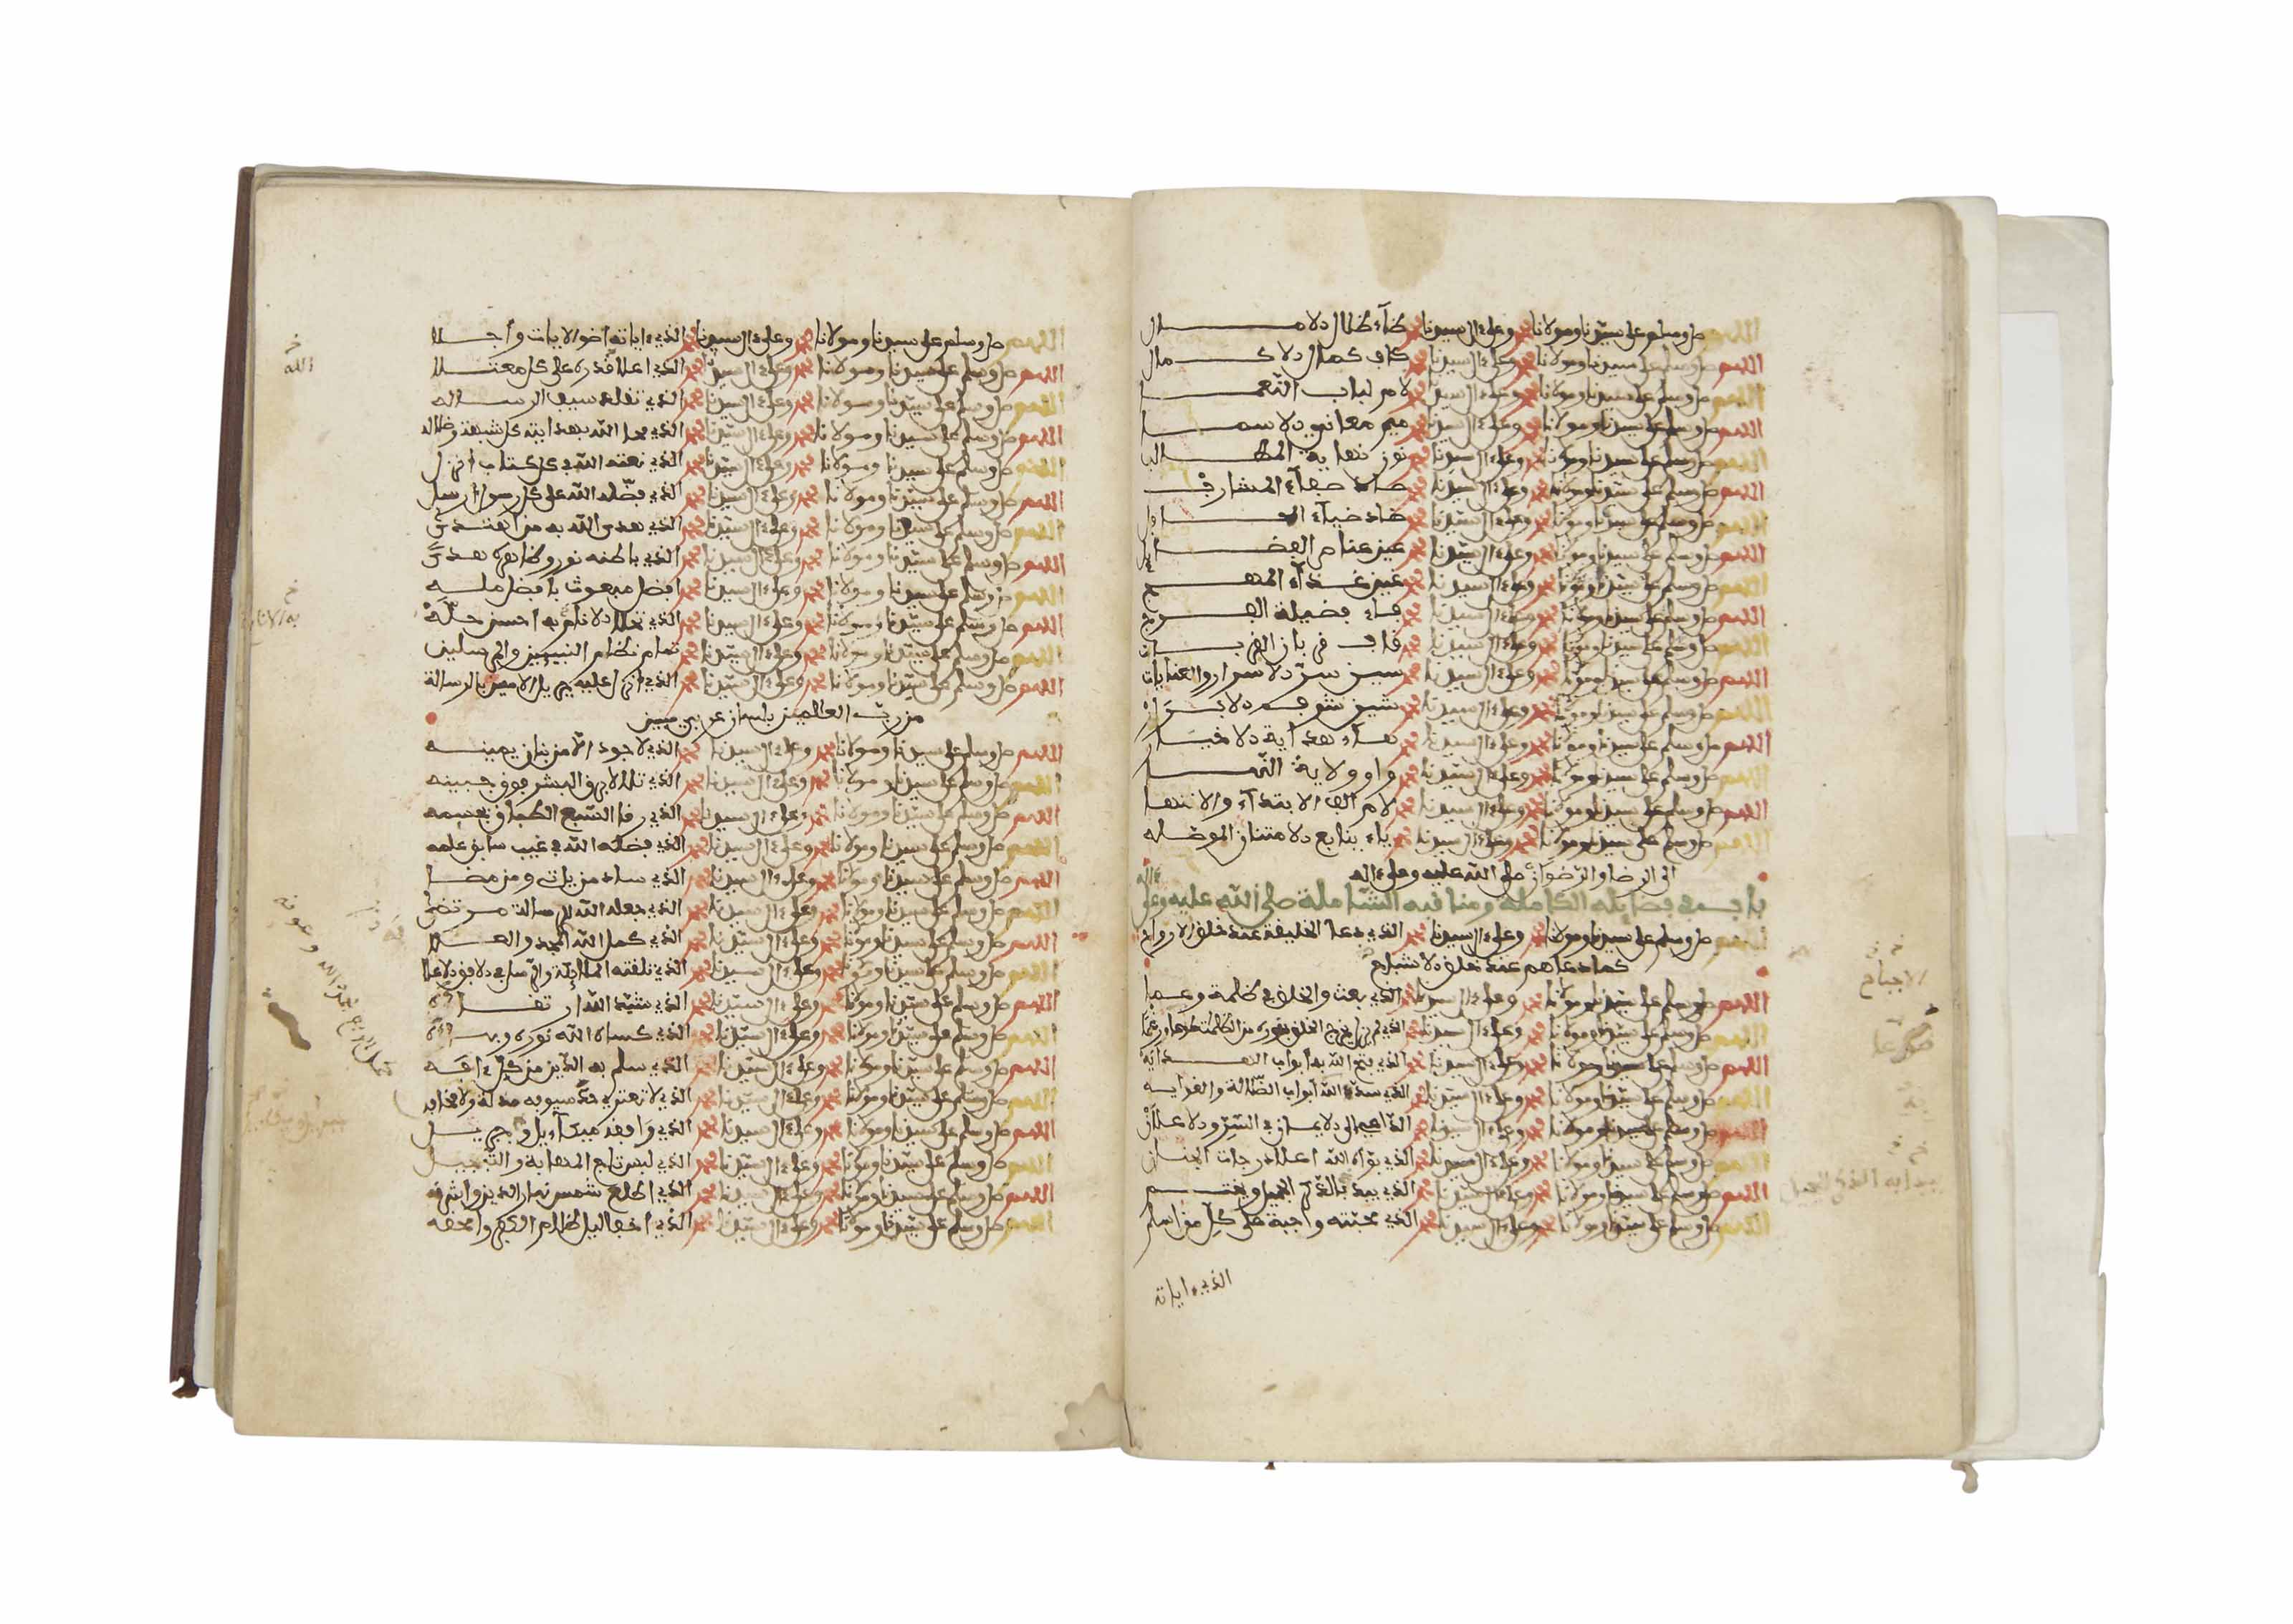 اللهم صل وسلم على سيدنا ومولانا محمد وعلى ءال سيدنا محمد ظاء ظلال الامال
اللهم صل وسلم على سيدنا ومولانا محمد وعلى ءال سيدنا محمد كاف كمال الاكمال
اللهم صل وسلم على سيدنا ومولانا محمد وعلى ءال سيدنا محمد لام لباب النعما
اللهم صل وسلم على سيدنا ومولانا محمد وعلى ءال سيدنا محمد ميم معاني الاسما
اللهم صل وسلم على سيدنا ومولانا محمد وعلى ءال سيدنا محمد نون نهاية المطالب
اللهم صل وسلم على سيدنا ومولانا محمد وعلى ءال سيدنا محمد صاد صفاء المشارب
اللهم صل وسلم على سيدنا ومولانا محمد وعلى ءال سيدنا محمد ضاد ضياء
اللهم صل وسلم على سيدنا ومولانا محمد وعلى ءال سيدنا محمد عين
اللهم صل وسلم على سيدنا ومولانا محمد وعلى ءال سيدنا محمد غين غذاء المهج
اللهم صل وسلم على سيدنا ومولانا محمد وعلى ءال سيدنا محمد فاء فضيلة
اللهم صل وسلم على سيدنا ومولانا محمد وعلى ءال سيدنا محمد قاف
اللهم صل وسلم على سيدنا ومولانا محمد وعلى ءال سيدنا محمد سين سر الاسرار والعنايات
اللهم صل وسلم على سيدنا ومولانا محمد وعلى ءال سيدنا محمد شين شرف الابرار
اللهم صل وسلم على سيدنا ومولانا محمد وعلى ءال سيدنا محمد هاء هداية الاخيار
اللهم صل وسلم على سيدنا ومولانا محمد وعلى ءال سيدنا محمد واو ولاية
اللهم صل وسلم على سيدنا ومولانا محمد وعلى ءال سيدنا محمد لام الف الابتداء والانتها
اللهم صل وسلم على سيدنا ومولانا محمد وعلى ءال سيدنا محمد ياء ينابع الامتنان الموصله
الى الرضا والرضوان صلى الله عليه وعلى ءاله
باب في فضايله الكاملة ومناقبه الشاملة صلى الله عليه وعلى ءاله
اللهم صل وسلم على سيدنا ومولانا محمد وعلى ءال سيدنا محمد الذي دعا الخليفة عند خلق الارواح
كما دعاهم عند خلق الاشباح
اللهم صل وسلم على سيدنا ومولانا محمد وعلى ءال سيدنا محمد الذي بعث والخلق في ظلمة وعما
اللهم صل وسلم على سيدنا ومولانا محمد وعلى ءال سيدنا محمد الذي لم يزل يخرج الخلق بنوره من الظلمات
اللهم صل وسلم على سيدنا ومولانا محمد وعلى ءال سيدنا محمد الذي فتح الله به ابواب الهداية
اللهم صل وسلم على سيدنا ومولانا محمد وعلى ءال سيدنا محمد الذي سد الله ابواب الضلالة والغوايه
اللهم صل وسلم على سيدنا ومولانا محمد وعلى ءال سيدنا محمد الداعي الى الايمان في السر والاعلان
اللهم صل وسلم على سيدنا ومولانا محمد وعلى ءال سيدنا محمد الذي بوأه الله اعلا درجات الجنان
اللهم صل وسلم على سيدنا ومولانا محمد وعلى ءال سيدنا محمد الذي يبدء بالذكر الجميل ويختم
اللهم صل وسلم على سيدنا ومولانا محمد وعلى ءال سيدنا محمد الذي محبته واجبة على كل من اسلم
الذي ءاياته
الاجباح
اللهم صل وسلم على سيدنا ومولانا محمد وعلى ءال سيدنا محمد الذي ءاياته اضوا الايات واجلا
اللهم صل وسلم على سيدنا ومولانا محمد وعلى ءال سيدنا محمد الذي اعلا قدره على كل معتلا
اللهم صل وسلم على سيدنا ومولانا محمد وعلى ءال سيدنا محمد الذي تقلد سيف الرساله
اللهم صل وسلم على سيدنا ومولانا محمد وعلى ءال سيدنا محمد الذي محا الله بهدايته كل شبهة وضلاله
اللهم صل وسلم على سيدنا ومولانا محمد وعلى ءال سيدنا محمد الذي نعته الله في كل كتاب انزل
اللهم صل وسلم على سيدنا ومولانا محمد وعلى ءال سيدنا محمد الذي فضله الله على كل رسول ارسل
اللهم صل وسلم على سيدنا ومولانا محمد وعلى ءال سيدنا محمد الذي هدى الله به من اهتدى
اللهم صل وسلم على سيدنا ومولانا محمد وعلى ءال سيدنا محمد الذي باطنه نور وظاهره هدى
اللهم صل وسلم على سيدنا ومولانا محمد وعلى ءال سيدنا محمد افضل مبعوث بافضل مله
اللهم صل وسلم على سيدنا ومولانا محمد وعلى ءال سيدنا محمد الذي تحلا الانام به احسن حلة
اللهم صل وسلم على سيدنا ومولانا محمد وعلى ءال سيدنا محمد تمام نظام النبيين والمرسلين
اللهم صل وسلم على سيدنا ومولانا محمد وعلى ءال سيدنا محمد الذي انزل عليه جبريل الامين بالرسالة
من رب العالمين بلسان عربي مبين
اللهم صل وسلم على سيدنا ومولانا محمد وعلى ءال سيدنا محمد الذي لا جود الا من بنان يمينه
اللهم صل وسلم على سيدنا ومولانا محمد وعلى ءال سيدنا محمد الذي تلالا برق البشر فوق جبينه
اللهم صل وسلم على سيدنا ومولانا محمد وعلى ءال سيدنا محمد الذي رقا السبع الطباق بجسمه
اللهم صل وسلم على سيدنا ومولانا محمد وعلى ءال سيدنا محمد الذي فضله الله في غيب سابق علمه
اللهم صل وسلم على سيدنا ومولانا محمد وعلى ءال سيدنا محمد الذي ساد من يات ومن مضا
اللهم صل وسلم على سيدنا ومولانا محمد وعلى ءال سيدنا محمد الذي جعله الله للرسالة مرتضى
اللهم صل وسلم على سيدنا ومولانا محمد وعلى ءال سيدنا محمد الذي كمل الله المجد والعلا
اللهم صل وسلم على سيدنا ومولانا محمد وعلى ءال سيدنا محمد الذي تلقته الملائكة والرسل في الافق الاعلا
اللهم صل وسلم على سيدنا ومولانا محمد وعلى ءال سيدنا محمد الذي شيد الله ارتقاءه
اللهم صل وسلم على سيدنا ومولانا محمد وعلى ءال سيدنا محمد الذي كساه الله نوره وبهاءه
اللهم صل وسلم على سيدنا ومولانا محمد وعلى ءال سيدنا محمد الذي سلم به الدين من كل ءافه
اللهم صل وسلم على سيدنا ومولانا محمد وعلى ءال سيدنا محمد الذي لا تعتري حد سيوفه
اللهم صل وسلم على سيدنا ومولانا محمد وعلى ءال سيدنا محمد الذي رافقه ميكاءيل وجبريل
اللهم صل وسلم على سيدنا ومولانا محمد وعلى ءال سيدنا محمد الذي لبس تاج المهابة والتبجيل
اللهم صل وسلم على سيدنا ومولانا محمد وعلى ءال سيدنا محمد الذي اطلع شمس نهار الدين واشرقه
اللهم صل وسلم على سيدنا ومولانا محمد وعلى ءال سيدنا محمد الذي اخفا ليل ظلام الكفر وامحقه
الله